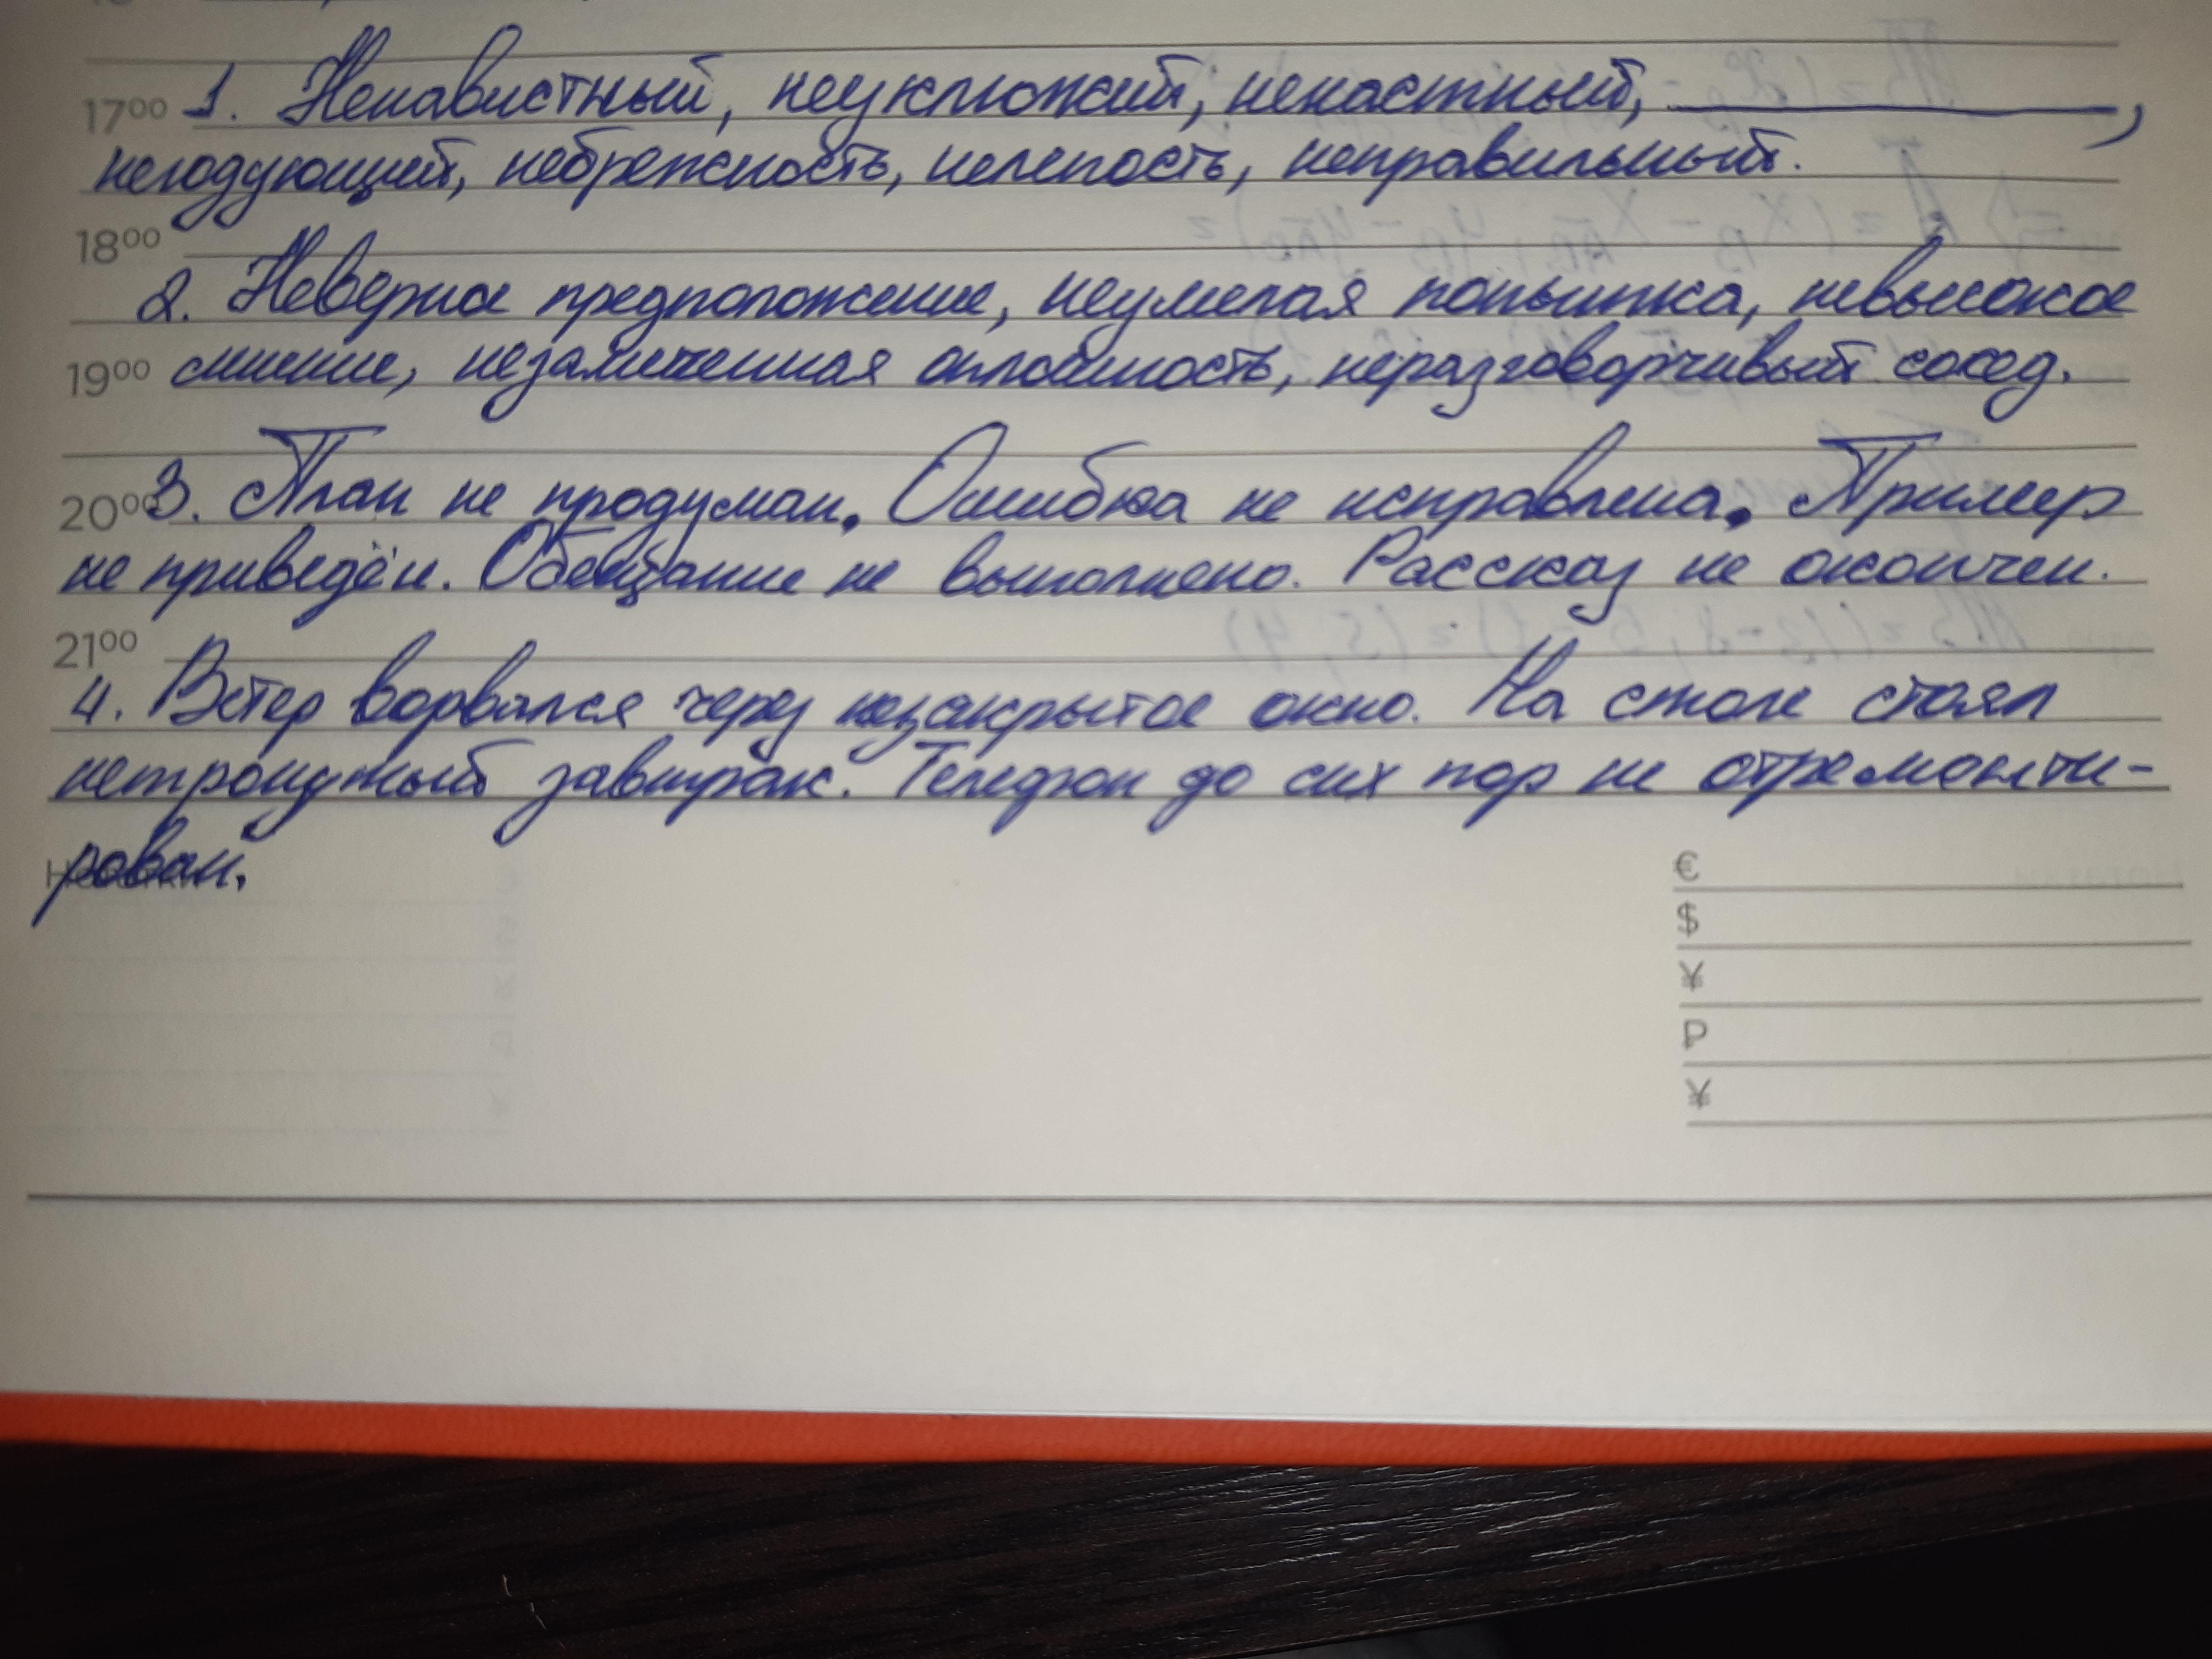 17⁰⁰ 1. Ненавистный, неуклюжий, ненастный, ____________,
негодующий, небрежность, нелепость, неправильный.
18⁰⁰
2. Неверное предположение, неумелая попытка, невысокое
19⁰⁰ мнение, незамеченная оплошность, неразговорчивый сосед.
20⁰⁰ 3. План не продуман. Ошибка не исправлена. Пример
не приведён. Обещание не выполнено. Рассказ не окончен.
21⁰⁰
4. Ветер ворвался через незакрытое окно. На столе стоял
нетронутый завтрак. Телефон до сих пор не отремонти-
рован.
€
$
¥
₽
¥